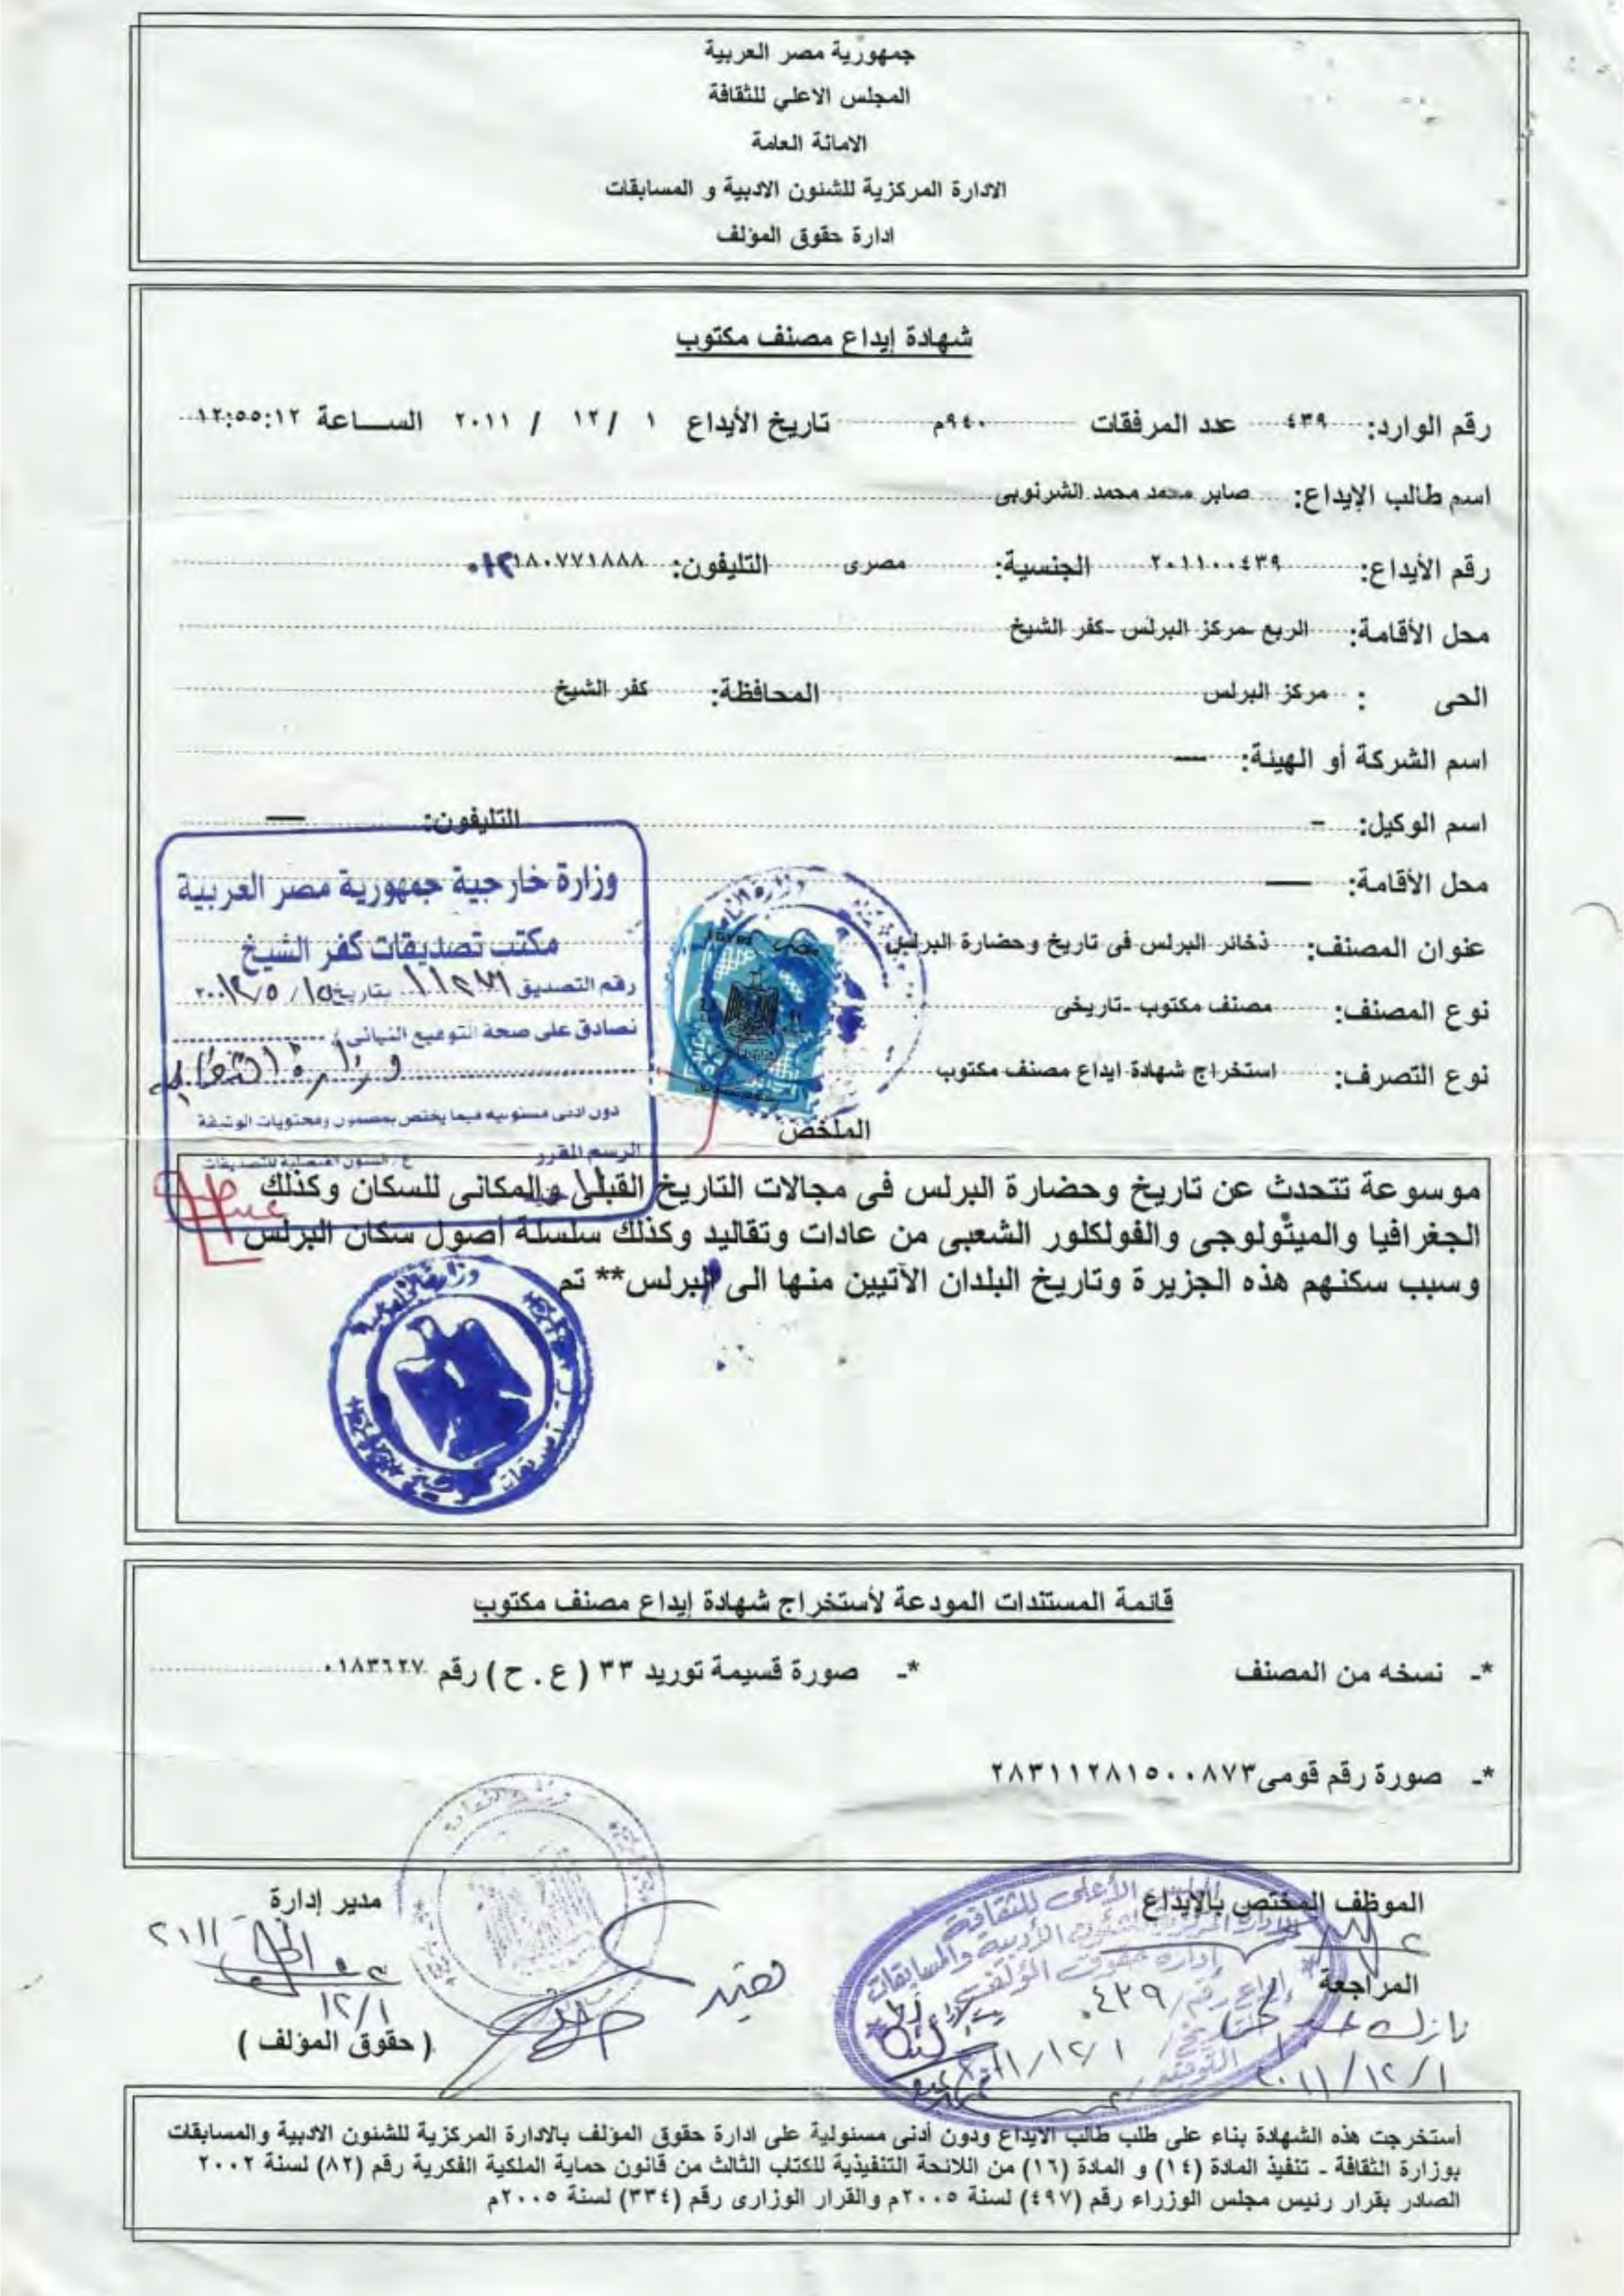 جمهورية مصر العربية
المجلس الاعلي للثقافة
الامانة العامة
الادارة المركزية للشئون الادبية و المسابقات
ادارة حقوق المؤلف
شهادة إيداع مصنف مكتوب
رقم الوارد: ٤٣٩ عدد المرفقات ٩٤٠م تاريخ الأيداع ١ / ١٢ / ٢٠١١ الساعة ١٢:٥٥:١٢
اسم طالب الإيداع: صابر محمد محمد الشرنوبى
رقم الأيداع: ٢٠١١٠٠٤٣٩ الجنسية: مصرى التليفون: ٠١٢١٨٠٧٧١٨٨٨
محل الأقامة: الربع -مركز البرلس -كفر الشيخ
الحى : مركز البرلس المحافظة: كفر الشيخ
اسم الشركة أو الهيئة: —
اسم الوكيل: - التليفون: —
محل الأقامة: —
عنوان المصنف: ذخائر البرلس فى تاريخ وحضارة البرلس
نوع المصنف: مصنف مكتوب -تاريخى
نوع التصرف: استخراج شهادة ايداع مصنف مكتوب
وزارة خارجية جمهورية مصر العربية
مكتب تصديقات كفر الشيخ
رقم التصديق بتاريخ
نصادق على صحة التوقيع النهائى
وزارة الثقافة
دون ادنى مسئولية فيما يختص بمضمون ومحتويات الوثيقة
الرسم المقرر
الملخص
موسوعة تتحدث عن تاريخ وحضارة البرلس فى مجالات التاريخ القبلى والمكانى للسكان وكذلك
الجغرافيا والميثولوجى والفولكلور الشعبى من عادات وتقاليد وكذلك سلسلة أصول سكان البرلس
وسبب سكنهم هذه الجزيرة وتاريخ البلدان الآتيين منها الى البرلس** تم
قائمة المستندات المودعة لأستخراج شهادة إيداع مصنف مكتوب
*- نسخه من المصنف *- صورة قسيمة توريد ٣٣ ( ع . ح ) رقم ٠١٨٣٦٢٧
*- صورة رقم قومى٢٨٣١١٢٨١٥٠٠٨٧٣
الموظف المختص بالإيداع
مدير إدارة
المراجعة
٢٠١١/١٢/١
١٢/١
( حقوق المؤلف )
المجلس الأعلى للثقافة
الادارة المركزية للشئون الأدبية والمسابقات
إدارة حقوق المؤلف
إيداع رقم / ٤٣٩
تاريخ / ١ / ١٢ / ٢٠١١
التوقيع /
أستخرجت هذه الشهادة بناء على طلب طالب الايداع ودون أدنى مسئولية على ادارة حقوق المؤلف بالادارة المركزية للشئون الادبية والمسابقات
بوزارة الثقافة - تنفيذ المادة (١٤) و المادة (١٦) من اللائحة التنفيذية للكتاب الثالث من قانون حماية الملكية الفكرية رقم (٨٢) لسنة ٢٠٠٢
الصادر بقرار رئيس مجلس الوزراء رقم (٤٩٧) لسنة ٢٠٠٥م والقرار الوزارى رقم (٣٣٤) لسنة ٢٠٠٥م